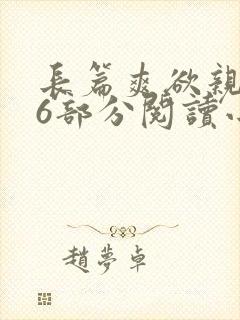 長篇爽欲親
6部分閱讀小
趙夢卓